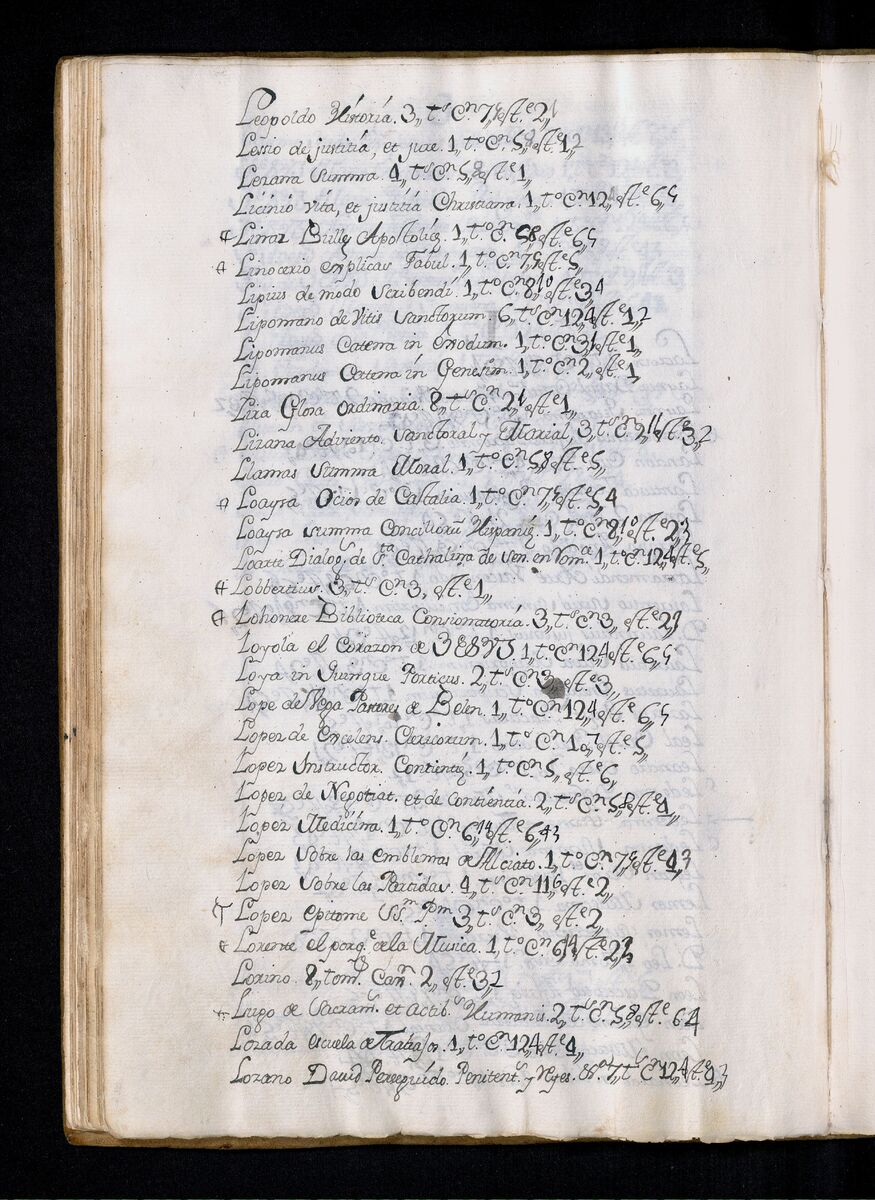 Leopoldo Historia. 3,, t.s C.n 7,, est.e 2,,
Lessio de justitia, et jure. 1,, t.o C.n 5,, est.e 1,2
Lezana Summa. 4,, t.s C.n 5,, est.e 1,,
Licinio vita, et justitia Christiana. 1,, t.o C.n 12,, est.e 6,5
Bullę Apostolię. 1,, t.o C.n 58, est.e 6,5
Linocerio explicas Fabul. 1,, t.o C.n 7,, est.e 5,,
Lipius de modo Scribendi. 1,, t.o C.n 8,, est.e 3,4
Lipomano de Vitis Sanctorum. 6,, t.s C.n 124, est.e 1,2
Lipomanus Catena in Exodum. 1,, t.o C.n 31, est.e 1,,
Lipomanus Catena in Genesim. 1,, t.o C.n 2,, est.e 1,,
Lira Glosa Ordinaria. 8,, t.s C.n 21, est.e 1,,
Lizana Adviento, Sanctoral y Marial, 3,, t.s C.n est.e 3,2
Llamas Summa Moral. 1,, t.o C.n 58, est.e 5,,
Loaysa Ocios de Castalia. 1,, t.o C.n 7,, est.e 5,4
Loaysa summa Conciliorũ Hispanię. 1,, t.o C.n 8,, est.e 2,3
Loarte Dialog.s de S.ta Cathalina de Sen. en Rom.ce 1,, t.o C.n 124, est.e 5,,
Lobbertius. 3,, t.s C.n 3,, est.e 1,,
Lohonere Biblioteca Consionatoria. 3,, t.s C.n 3,, est.e 2,3
Loyola el Corazon de JESUS 1,, t.o C.n 124, est.e 6,5
Loya in Quinque Porticus. 2,, t.s C.n 3,, est.e 3,,
Lope de Vega Pastores de Belen. 1,, t.o C.n 124, est.e 6,5
Lopez de Excelens. Clericorum. 1,, t.o C.n 10,7 est.e 5,,
Lopez Instructor. Contientię. 1,, t.o C.n 5,, est.e 6,
Lopez de Negotiat. et de Contientia. 2,, t.s C.n 58, est.e 4,,
Lopez Medicina. 1,, t.o C.n 614 est.e 6,43
Lopez Sobre los emblemas de Alciato. 1,, t.o C.n 7,, est.e 4,3
Lopez Sobre las Partidas. 4,, t.s C.n 11, est.e 2,,
Lopez epitome SS.m P.m 3,, t.s C.n 3,, est.e 2,,
Lorente el porq.e de la Musica. 1,, t.o C.n 614 est.e 2,3
Lorino. 8,, tom.s Can.n 2,, est.e 3,2
Lugo de Sacram.s et actib.s Humanis. 2,, t.s C.n 58, est.e 64
Lozada escuela de Trabajos. 1,, t.o C.n 124, est.e 4,,
Lozano David Perseguido. Penitent.e y Reyes. 7,, t.s C.n 124, est.e 4,3